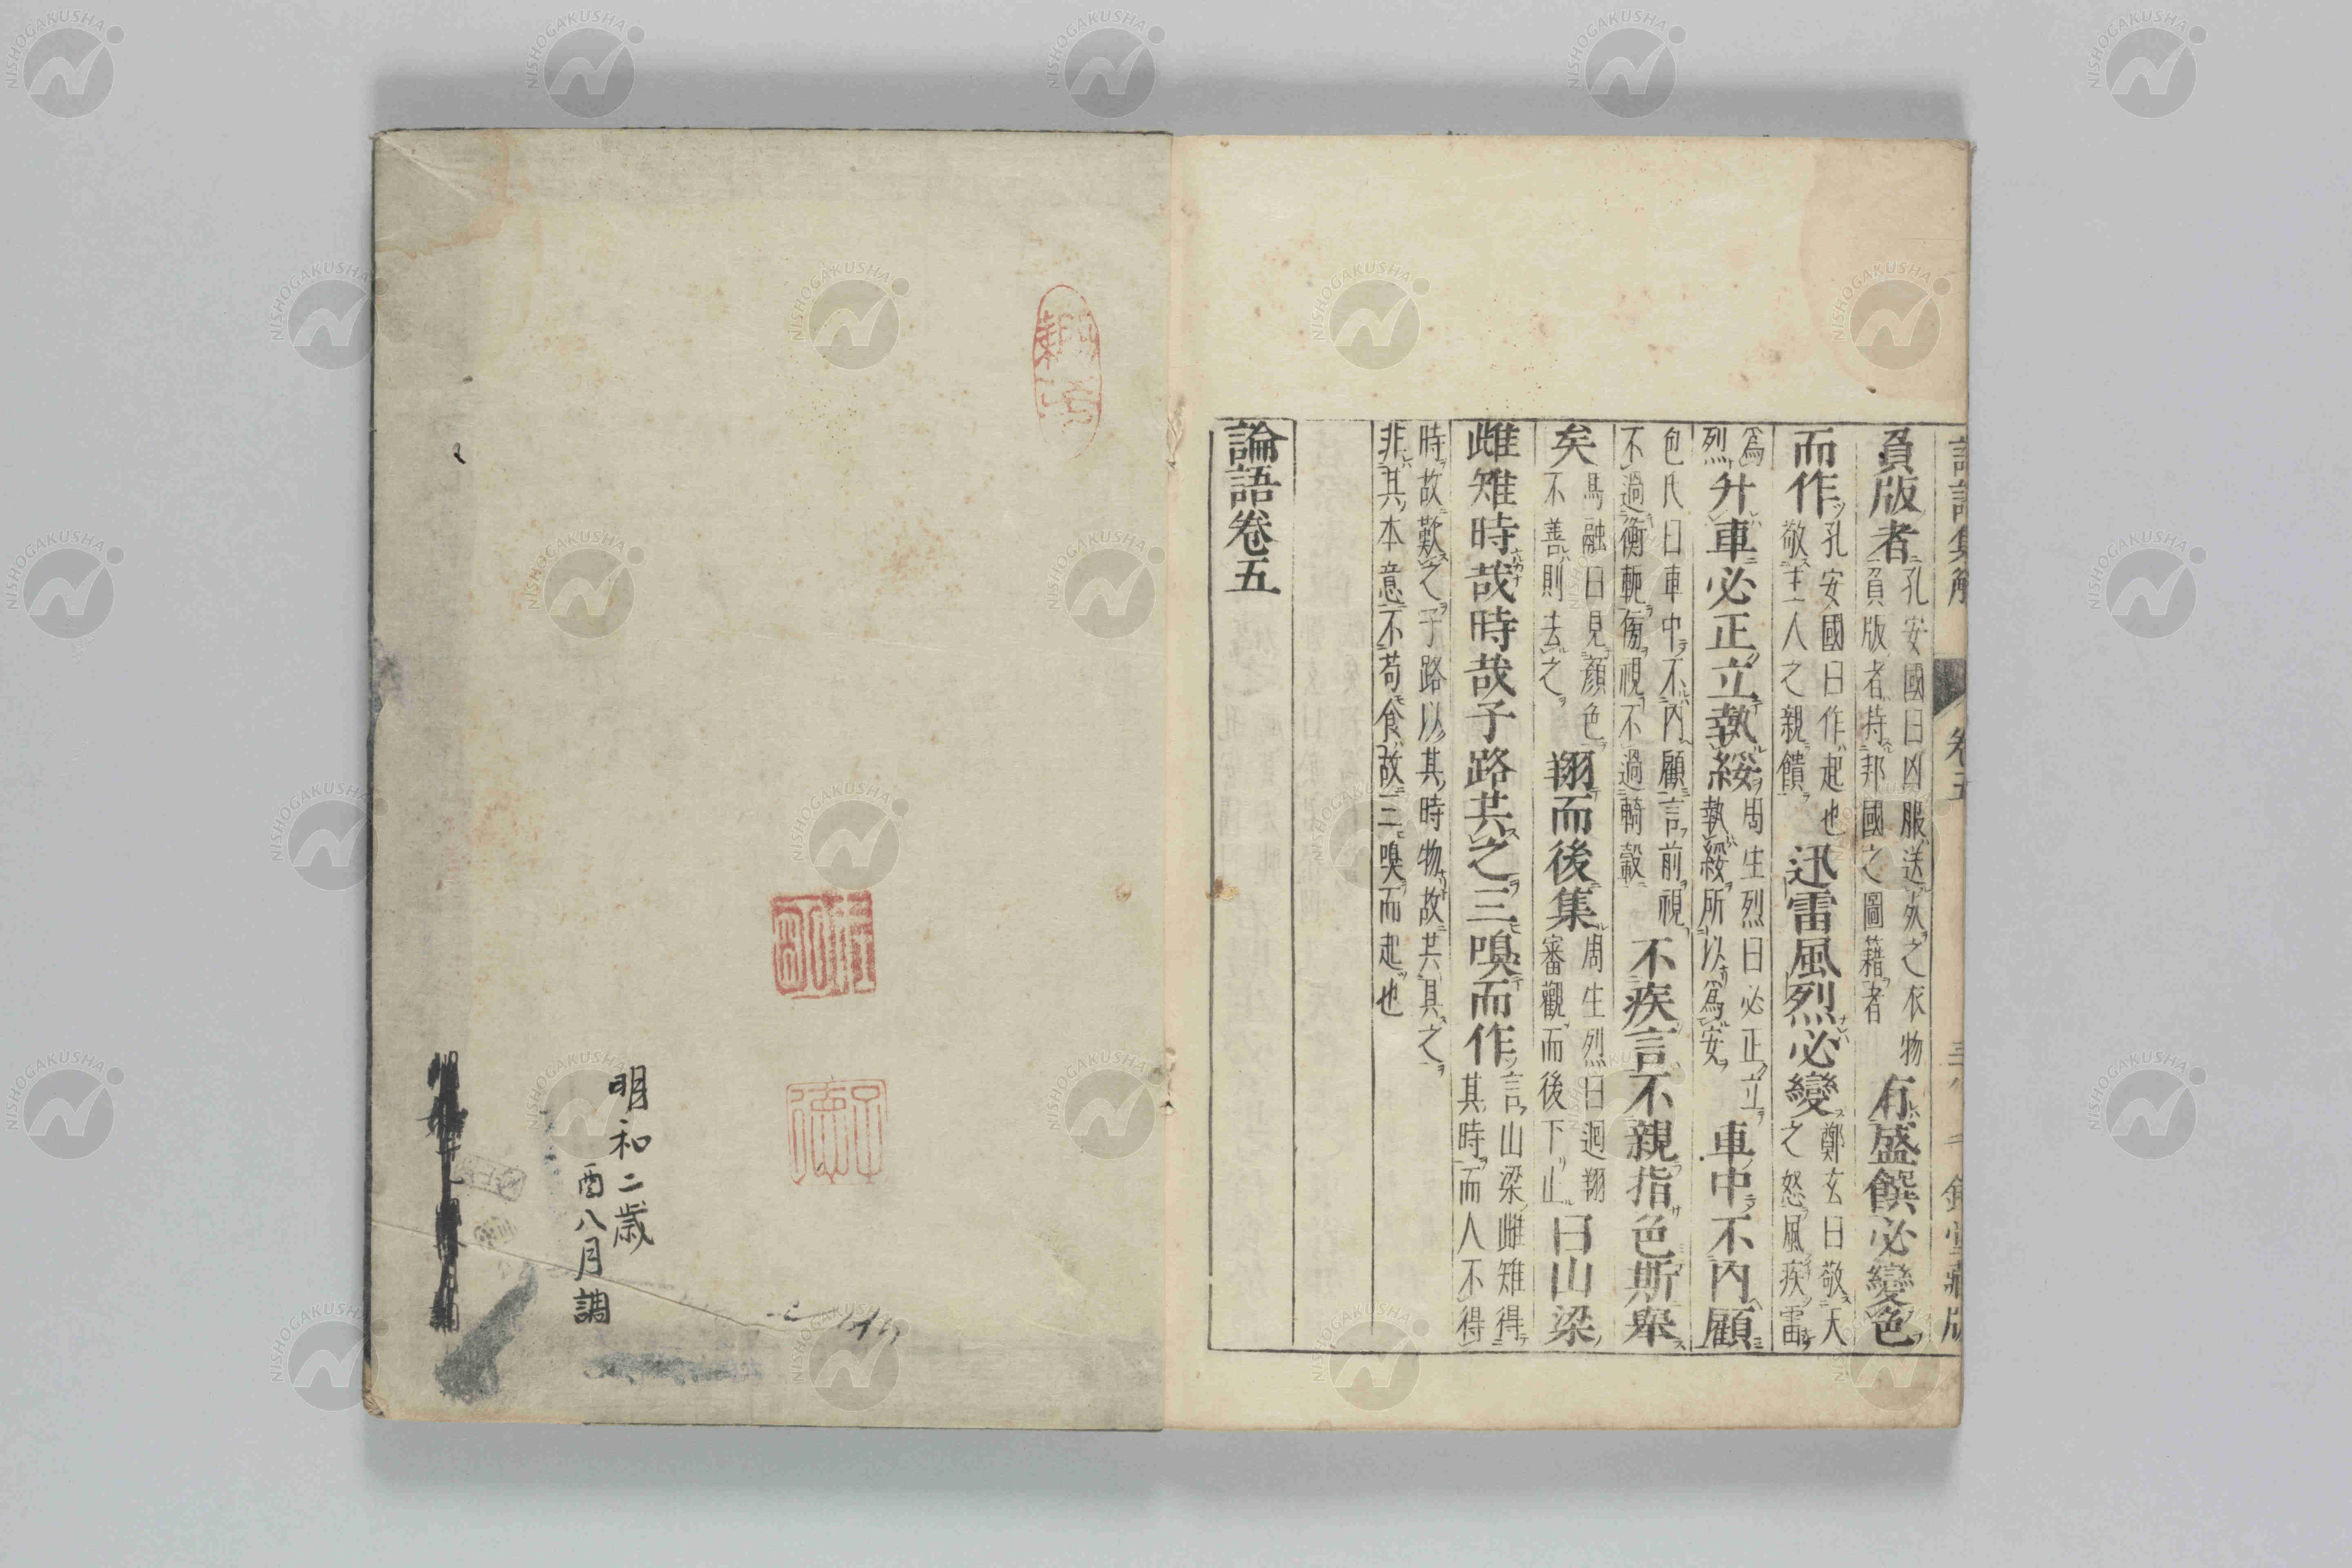 負版者孔安國曰凶服送死之衣物負版者持邦國之圖籍者有盛饌必變色
而作孔安國曰作起也敬主人之親饋迅雷風烈必變鄭玄曰敬天之怒風疾雷
爲烈升車必正立執綏周生烈曰必正立執綏所以爲安車中不内顧
包氏曰車中不内顧言前視不過衡軛傍視不過輢轂不疾言不親指色斯舉
矣馬融曰見顏色不善則去之翔而後集周生烈曰迴翔審觀而後下止曰山梁
雌雉時哉時哉子路共之三嗅而作言山梁雌雉得其時而人不得
時故歎之子路以其時物故共具之非其本意不苟食故三嗅而起也
論語卷五
明和二歳
酉八月調
NISHOGAKUSHA